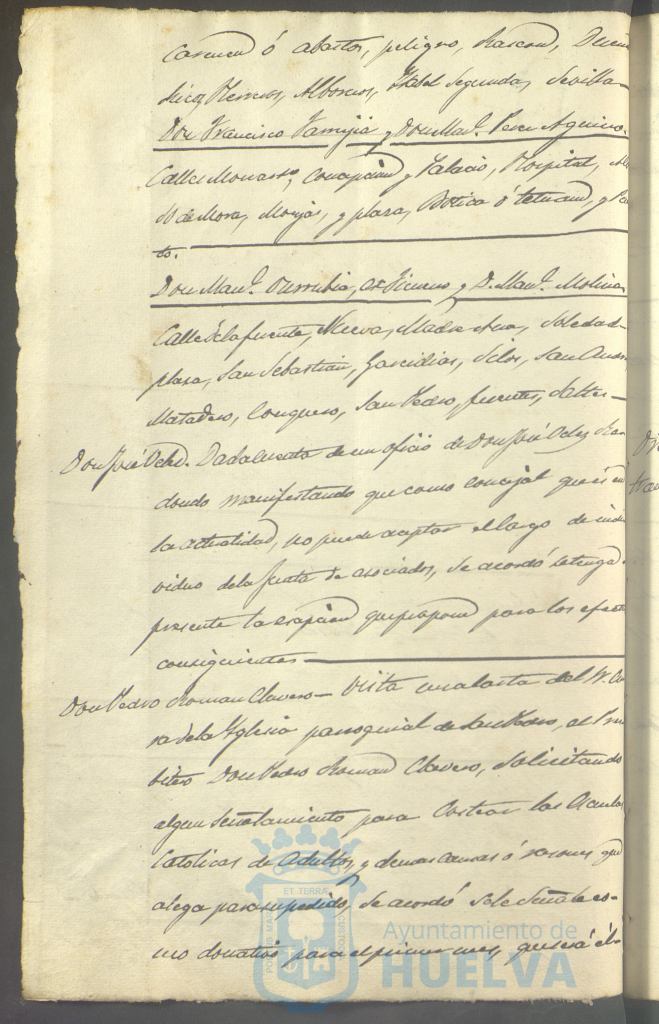 Carmen ó abastos, peligro, Rascon, Duen
Rico, Herrero, Alborno, Isabel Segunda, Sevilla
Don Francisco y Don Manl. Perez Aquino.
Calles Monasto, Concepcion y Palacio, Hospital,
de Mora, Monjas, y plaza, Botica ó tetuan, y Pue
to.
Don Manl. y D. Manl. Molina
Calles de la fuente, Nueva, Madre Ana, Soledad
plaza, San Sebastian, Garcidias, Silos, San Andres
Matadero, Conquero, San Pedro, fuentes,
Don José Ochd. Dada cuenta de un oficio de Don José
dondo manifestando que como concejal que és en
la actualidad, no puede aceptar el cargo de indi
viduo de la Junta de asociados, se acordó se tenga
presente la escepcion que propone para los efectos
consiguientes
Don Pedro Roman Clavero – Vista una carta del Sr. Cu
ra de la Yglesia parroquial de San Pedro, el Pres
bitero Don Pedro Roman Clavero, solicitando
algun señalamiento para costear las Escuelas
Catolicas de Adultos, y demas causas ó razones que
alega para su pedido, se acordó se le señale co-
mo donativo para el primer mes, que será él
ET TERRÆ
PORTUS MARIS
CUSTODIA
Ayuntamiento de
HUELVA